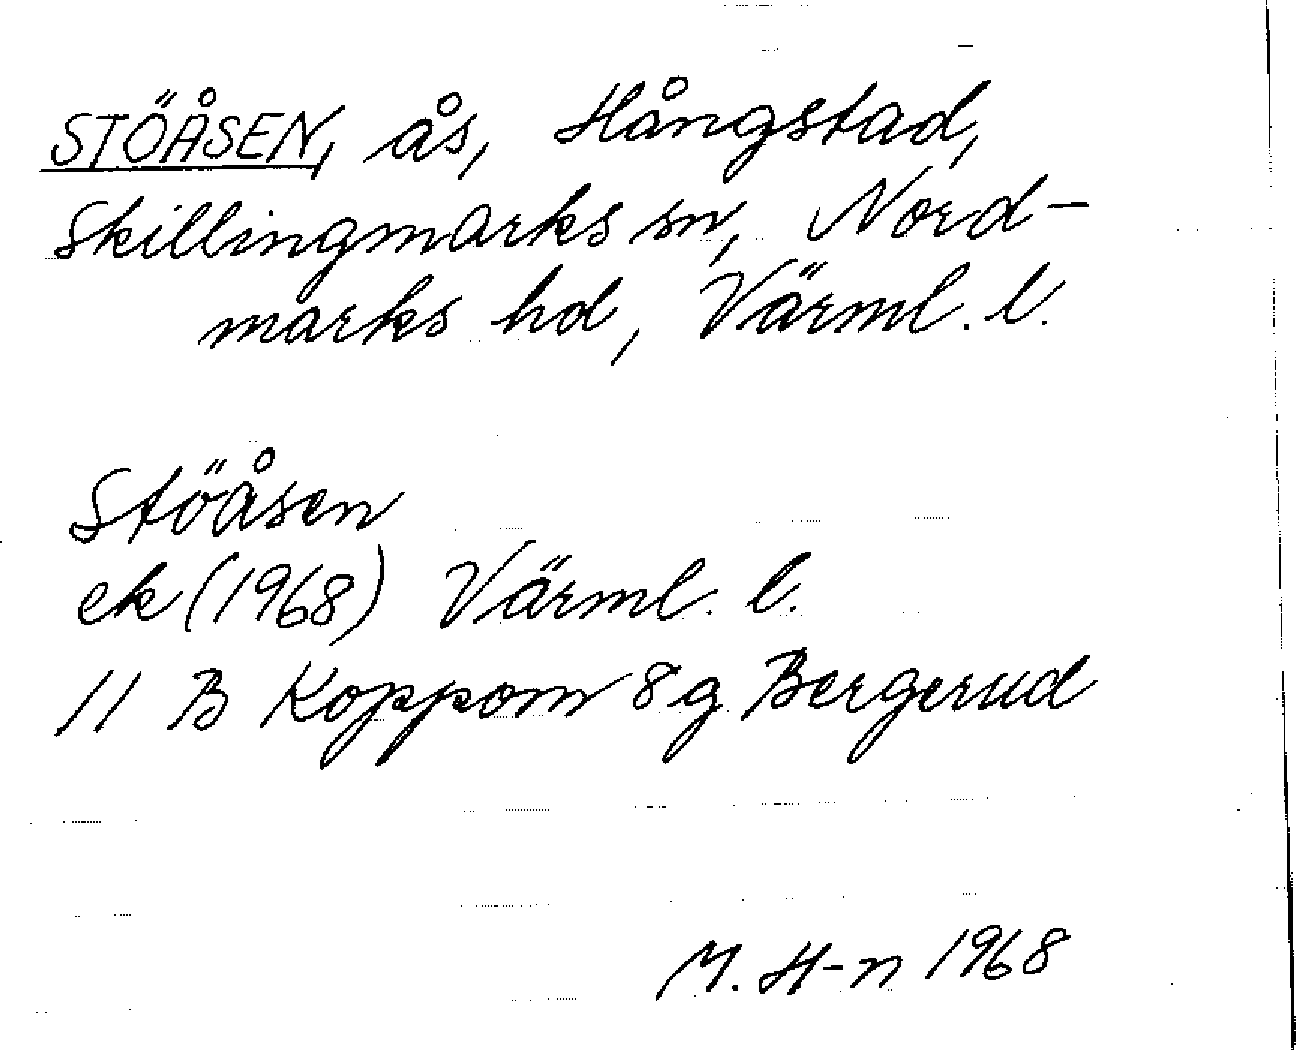 STÖÅSEN, ås, Hångstad,
Skillingmarks sn, Nord-
marks hd, Värml. l.
Stöåsen
ek (1968) Värml. l.
11 B Koppom 8 g Bergerud
M. H-n 1968